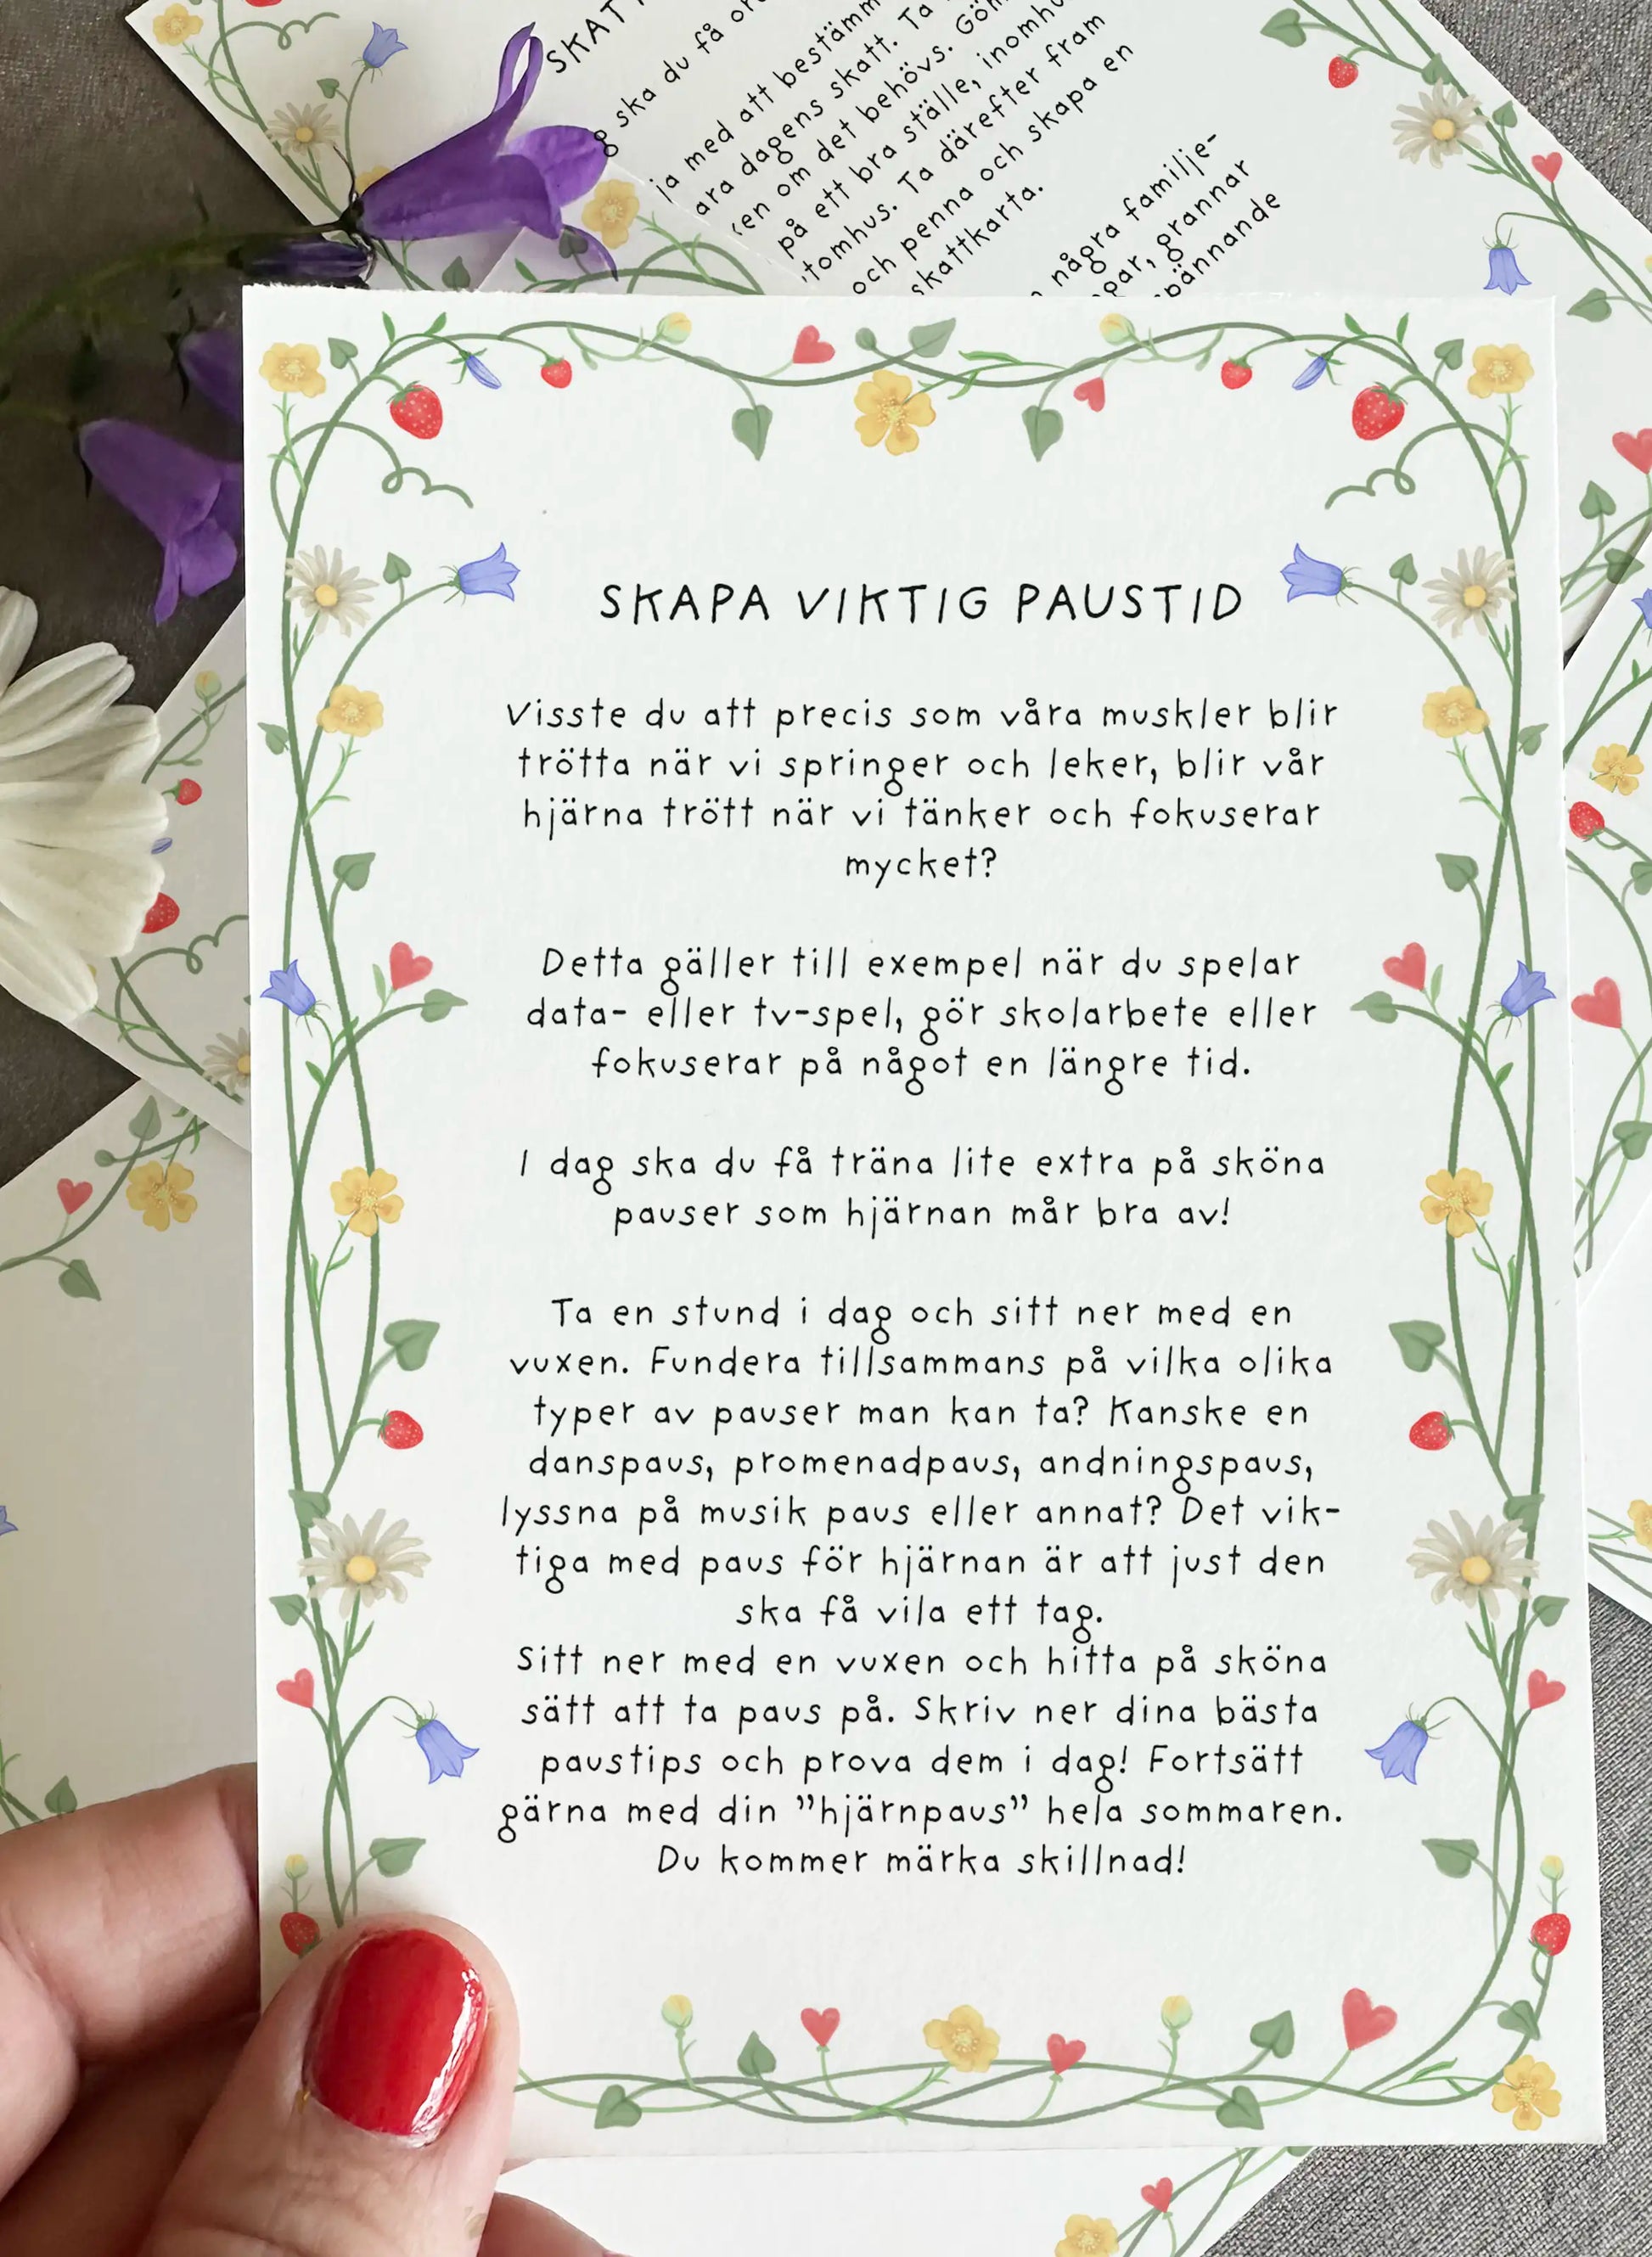 SKATT
ska du få
ja med att bestämm
ara dagens skatt. Ta
en om det behövs. Göm
på ett bra ställe, inomhu
tomhus. Ta därefter fram
och penna och skapa en
skattkarta.
några familje-
par, grannar
pännande
SKAPA VIKTIG PAUSTID
Visste du att precis som våra muskler blir
trötta när vi springer och leker, blir vår
hjärna trött när vi tänker och fokuserar
mycket?
Detta gäller till exempel när du spelar
data- eller tv-spel, gör skolarbete eller
fokuserar på något en längre tid.
I dag ska du få träna lite extra på sköna
pauser som hjärnan mår bra av!
Ta en stund i dag och sitt ner med en
vuxen. Fundera tillsammans på vilka olika
typer av pauser man kan ta? Kanske en
danspaus, promenadpaus, andningspaus,
lyssna på musik paus eller annat? Det vik-
tiga med paus för hjärnan är att just den
ska få vila ett tag.
Sitt ner med en vuxen och hitta på sköna
sätt att ta paus på. Skriv ner dina bästa
paustips och prova dem i dag! Fortsätt
gärna med din ”hjärnpaus” hela sommaren.
Du kommer märka skillnad!